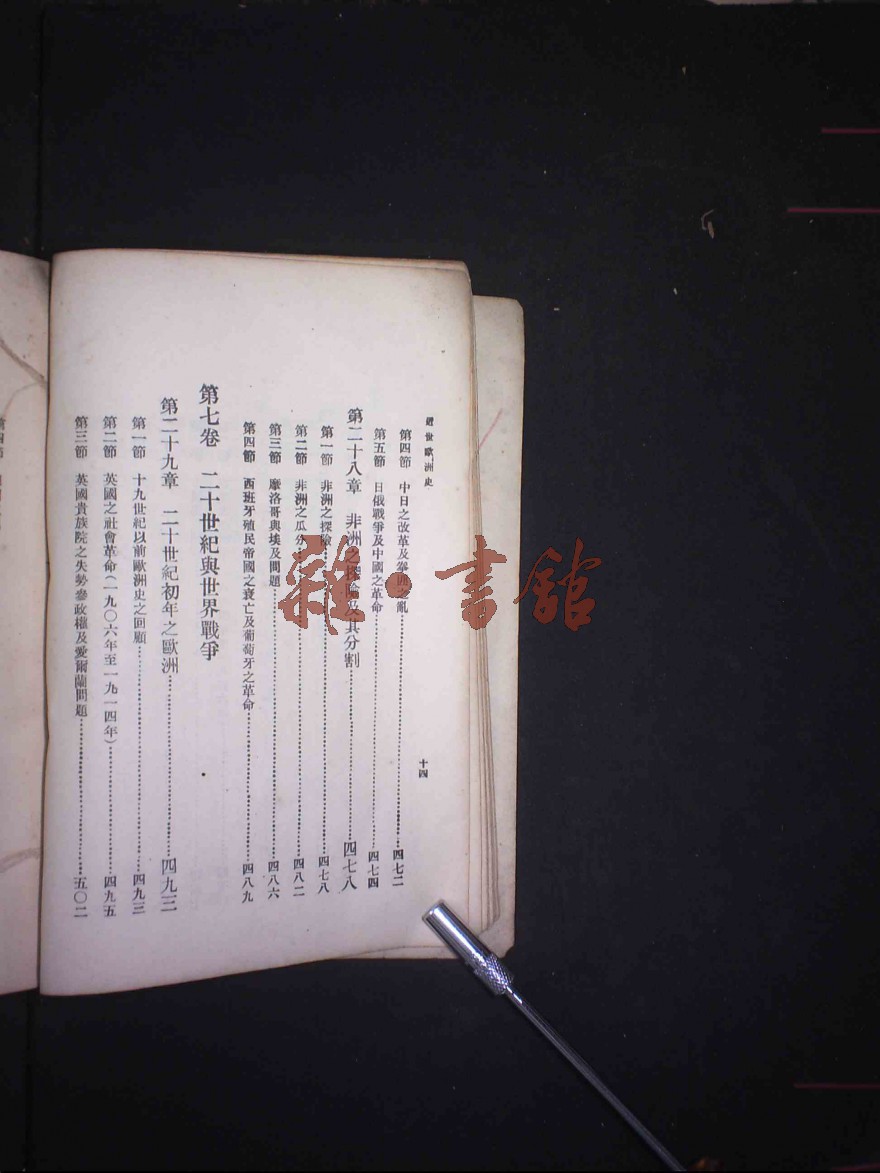 近世歐洲史
十四
第四節 中日之改革及拳匪之亂 四七二
第五節 日俄戰爭及中國之革命 四七四
第二十八章 非洲之探險及其分割 四七八
第一節 非洲之探險 四七八
第二節 非洲之瓜分 四八二
第三節 摩洛哥與埃及問題 四八六
第四節 西班牙殖民帝國之衰亡及葡萄牙之革命 四八九
第七卷 二十世紀與世界戰爭
第二十九章 二十世紀初年之歐洲 四九三
第一節 十九世紀以前歐洲史之回顧 四九三
第二節 英國之社會革命(一九〇六年至一九一四年) 四九五
第三節 英國貴族院之失勢參政權及愛爾蘭問題 五〇二
雜·書館